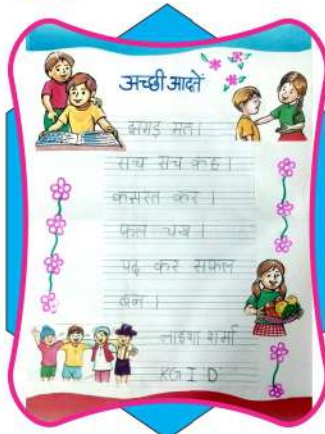 अच्छी आदतें
झगड़ मत।
सच सच कह।
कसरत कर।
फल चख।
पढ़ कर सफल
बन।
लाइशा शर्मा
KG I D